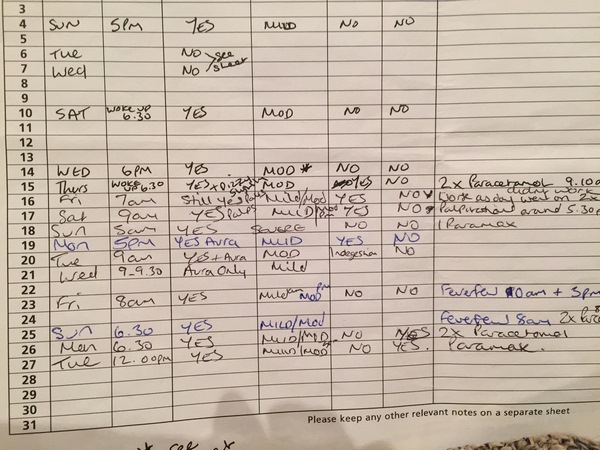 3
4 SUN 5PM YES MILD NO NO
5
6 Tue NO see
7 Wed NO sheet
8
9
10 SAT WOKE UP 6.30 YES MOD NO NO
11
12
13
14 WED 6PM YES MOD * NO NO
15 Thurs WOKE UP 6.30 YES + Dizzy MOD YES NO 2x Paracetamol 9.10a
didn't work
16 Fri 7am Still Yes Mild/Mod YES NO Work as day went on 2x
17 Sat 9am YES MILD YES NO Palpitations around 5.30p
18 Sun 8am YES SEVERE NO NO 1 Paramax
19 Mon 5PM YES Aura MILD YES NO
20 Tue 9am YES + Aura MOD Indegestion NO
21 Wed 9-9.30 Aura Only Mild
22
23 Fri 8am YES Mild am MOD PM NO NO Feverfew 10am + 3pm
24 Feverfew 8am 2x Para
25 SUN 6.30 YES MILD/MOD NO YES 2x Paracetamol
26 Mon 6.30 YES MILD/MOD NO YES. Paramax.
27 Tue 12.00PM YES MILD/MOD
28
29
30
31
Please keep any other relevant notes on a separate sheet
* see